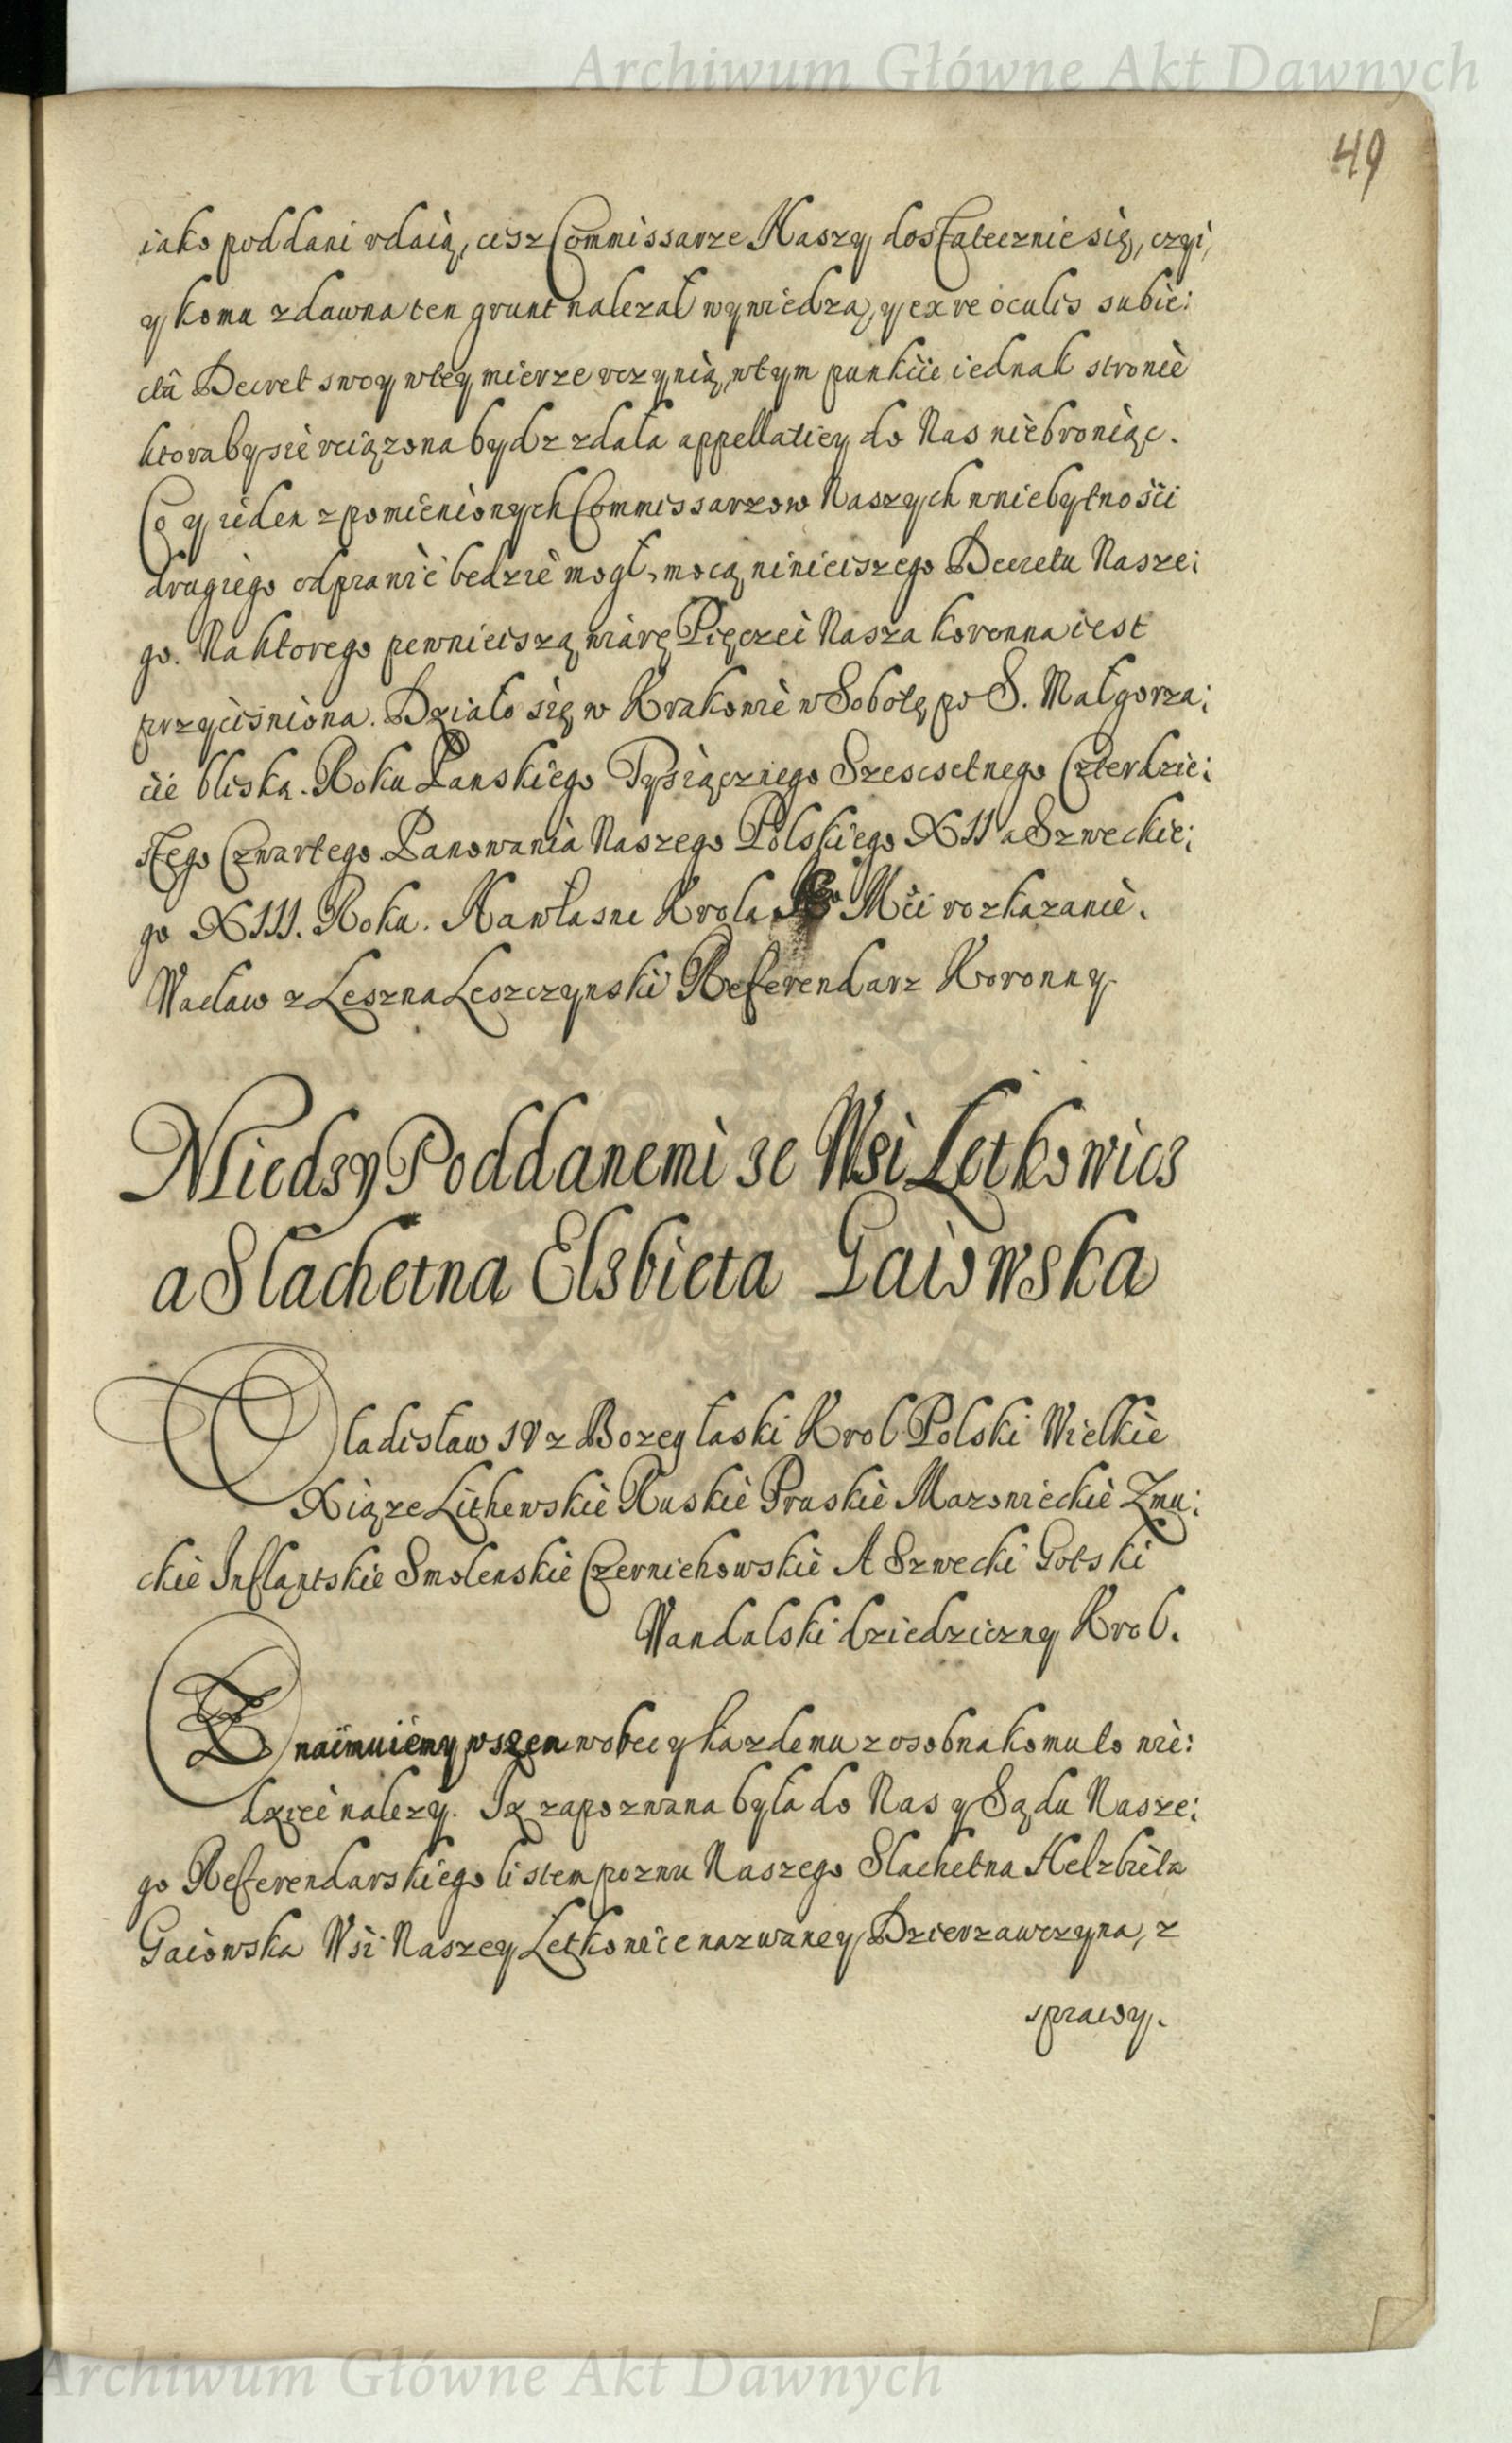 Archiwum Główne Akt Dawnych
49
iako poddani vdaią, cisz Commissarze Naszy dostatecznie się, czyi,
y komu zdawna ten grunt nalezał wywiedzą, y ex re oculis subie:
ctâ Decret swoy wtey mierze vczynią, wtym punkcie iednak stronie
ktoraby się vciązona bydz zdała appellatiey do Nas niebroniąc.
Co y ieden z pomienionych Commissarzow Naszych w niebytności
drugiego odprawić bedzie mogł, mocą ninieiszego Decretu Nasze:
go. Na ktorego pewnieiszą wiarę Pięczęć Nasza koronna iest
przyciśniona. Działo się w Krakowie w Sobotę po S. Małgorza:
cie bliską. Roku Panskiego Tysiącznego Szescsetnego Czterdzie:
stego Czwartego Panowania Naszego Polskiego XII a Szweckie:
go XIII. Roku. Na własne Krola Je° Mći rozkazanie.
Wacław z Leszna Leszczynski Referendarz Koronny.
Miedzy Poddanemi ze Wsi Letkowicz
a Slachetna Elzbieta Gaiowska
Vladisław IV z Bozey łaski Krol Polski Wielkie
Xiąze Lithewskie Ruskie Pruskie Mazowieckie Zmu:
ckie Inflantskie Smolenskie Czerniehowskie A Szwecki Gotski
Wandalski dziedziczny Krol.
Znaimuiemy wszem wobec y kazdemu z osobna komu to wie:
dziec nalezy. Iz zapozwana była do Nas y Sądu Nasze:
go Referendarskiego listem pozwu Naszego Slachetna Helzbieta
Gaiowska Wsi Naszey Letkowice nazwaney Dzierzawczyna, z
sprawy.
Archiwum Główne Akt Dawnych